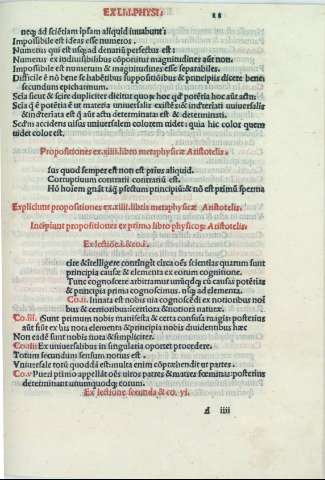 EX LIB.PHYSI.
neq; ad sciētiam ipsam aliquid iuuabunt:
Impossibile est ideas esse numeros.
Numerus qui est usq; ad denariū perfectus est:
Numerus ex indiuisibilibus cōponitur magnitudines aūt non.
Impossibile est numerum & magnitudines esse separabiles.
Difficile ē nō bene se habētibus suppositiōibus & principiis dicere bene:
secundum epicharmum.
Scia sicut & scire dupliciter dicitur quoꝝ hoc qd̄ē potētia hoc aūt actu.
Scia q̄ ē potētia ē ut materia uniuersalis existēs: & īncterīati uniuersalis
& incterīata est q̄ aūt actu determinata est & determinati.
Sed m̄ accidens uisus uniuersalem colorem uidet: quia hic color quem
uidet color est.
Propositiones ex.xiiii.libro metaphysicæ Aristotelis.
Ius quod semper est non est prius aliquid.
Corruptiuum contrarii contrarium est.
Hō hoīem gnāt itaq; pfectum principiū: & nō est primū sperma
Expliciunt propositiones ex.xiiii.libris metaphysicæ Aristotelis.
Incipiunt propositiones ex primo libro physicoꝝ Aristotelis.
Ex lectiōe.i.& co.i.
cire & ītelligere contingit circa oēs sciētias quarum sunt
principia causæ & elementa ex eorum cognitione.
Tunc cognoscere arbitramur unūq̄dq; cū causas potētias
& principia prima cognoscimus. usq; ad elementa.
Co.ii. Innata est nobis uia cognoscēdi ex notioribus nobis
bus & certioribus in certiora & notiora naturæ.
Co.iii. Sunt primum nobis manifesta & certa confusa magis posterius
aūt fiūt ex his nota elementa & principia nobis diuidentibus hæc
Non eadē sunt nobis nota & simpliciter.
Co.iiii Ex uniuersalibus in singularia oportet procedere.
Totum secundum sensum notius est.
Vniuersale totū quoddā est: multa enim cōprehendit ut partes.
Co.v Pueri primo appellāt oēs uiros patres & matres fœminas: posterius
determinant unumquodq; eorum.
Ex lectione secunda & co. vi.
iiii